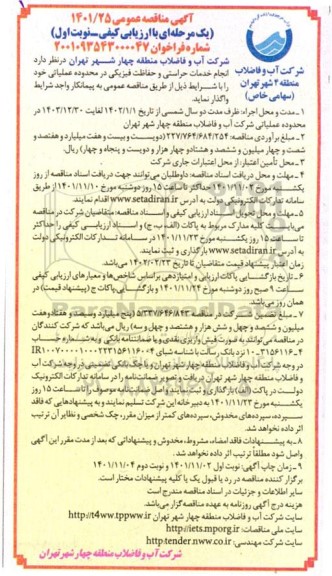 آگهی مناقصه عمومی ۱۴۰۱/۲۵
(یک مرحله‌ای با ارزیابی کیفی-نوبت اول)
شماره فراخوان ۲۰۰۱۰۹۳۵۴۳۰۰۰۰۴۷
شرکت آب و فاضلاب
منطقه ۴ شهر تهران
(سهامی خاص)
شرکت آب و فاضلاب منطقه چهار شهر تهران در نظر دارد
انجام خدمات حراستی و حفاظت فیزیکی در محدوده عملیاتی خود
را با شرایط ذیل از طریق مناقصه عمومی به پیمانکار واجد شرایط
واگذار نماید.
۱-مدت و محل اجراء: ظرف مدت دو سال شمسی از تاریخ ۱۴۰۲/۱/۱ لغایت ۱۴۰۳/۱۲/۳۰ در
محدوده عملیاتی شرکت آب و فاضلاب منطقه چهار شهر تهران
۲-مبلغ برآوردی مناقصه: ۲۲۷/۷۶۴/۶۸۴/۲۵۴ (دویست و بیست و هفت میلیارد و هفتصد و
شصت و چهار میلیون و ششصد و هشتاد و چهار هزار و دویست و پنجاه و چهار) ریال.
۳-محل تأمین اعتبار: از محل اعتبارات جاری شرکت
۴-مهلت و محل دریافت اسناد مناقصه: داوطلبان می‌توانند جهت دریافت اسناد مناقصه از روز
یکشنبه مورخ ۱۴۰۱/۱۱/۰۲ حداکثر تا ساعت ۱۵ روز دوشنبه مورخ ۱۴۰۱/۱۱/۱۰ از طریق
سامانه تدارکات الکترونیکی دولت به آدرس www.setadiran.ir اقدام نمایند.
۵-مهلت و محل تحویل اسناد ارزیابی کیفی و اسناد مناقصه: متقاضیان شرکت در مناقصه
می‌بایست کلیه مدارک مربوط به پاکات (الف، ب، ج) و اسناد ارزیابی کیفی را حداکثر
تا ساعت ۱۵ روز یکشنبه مورخ ۱۴۰۱/۱۱/۲۳ در سامانه تدارکات الکترونیکی دولت
به آدرس www.setadiran.ir بارگذاری و ثبت نمایند.
زمان اعتبار پیشنهاد قیمت متقاضیان تا تاریخ ۱۴۰۲/۰۲/۲۳ می‌باشد.
۶-تاریخ بازگشایی پاکات ارزیابی و امتیازدهی براساس شاخص‌ها و معیارهای ارزیابی کیفی
ساعت ۹ صبح روز دوشنبه مورخ ۱۴۰۱/۱۱/۲۴ و بازگشایی پاکات ج (پیشنهاد قیمت) در
همان روز می‌باشد.
۷-مبلغ تضمین شرکت در مناقصه ۵/۳۳۷/۶۴۶/۸۴۳ (پنج میلیارد و سیصد و سی و هفت
میلیون و ششصد و چهل و شش هزار و هشتصد و چهل و سه) ریال می‌باشد که شرکت کنندگان
در مناقصه می‌توانند به صورت فیش واریزی نقدی و یا ضمانتنامه بانکی و به شماره حساب
۴-۳۱۵۶۱۱-۱۰ نزد بانک رسالت با شناسه شبای
در وجه شرکت آب و فاضلاب منطقه چهار شهر تهران و یا چک بانکی تضمینی در وجه شرکت آب
و فاضلاب منطقه چهار شهر تهران دریافت و تصویر ضمانت‌نامه را در سامانه تدارکات الکترونیک
دولت در پاکت (الف) بارگذاری و ثبت نمایند و اصل ضمانتنامه موصوف را تا ساعت ۱۵ روز
یکشنبه مورخ ۱۴۰۱/۱۱/۲۳ به دبیرخانه این شرکت تسلیم نمایند و به پیشنهادهایی که فاقد
سپرده، سپرده‌های مخدوش، سپرده‌های کمتر از میزان مقرر، چک شخصی و نظایر آن ترتیب
اثر داده نخواهد شد.
۸-به پیشنهادات فاقد امضاء، مشروط، مخدوش و پیشنهاداتی که بعد از مدت مقرر این آگهی
واصل شود مطلقاً ترتیب اثر داده نخواهد شد.
۹-زمان چاپ آگهی: نوبت اول ۱۴۰۱/۱۱/۰۲ و نوبت دوم ۱۴۰۱/۱۱/۰۴
برگزار کننده مناقصه در رد یا قبول یک یا کلیه پیشنهادات مختار است.
سایر اطلاعات و جزئیات در اسناد مناقصه مندرج است
هزینه درج آگهی روزنامه به عهده مناقصه گزار می‌باشد.
سایت شرکت آب و فاضلاب منطقه چهار شهر تهران http://t4ww.tppww.ir
سایت ملی مناقصات: http://iets.mporg.ir
سایت شرکت مهندسی: http:tender.nww.co.ir
شرکت آب و فاضلاب منطقه چهار شهر تهران